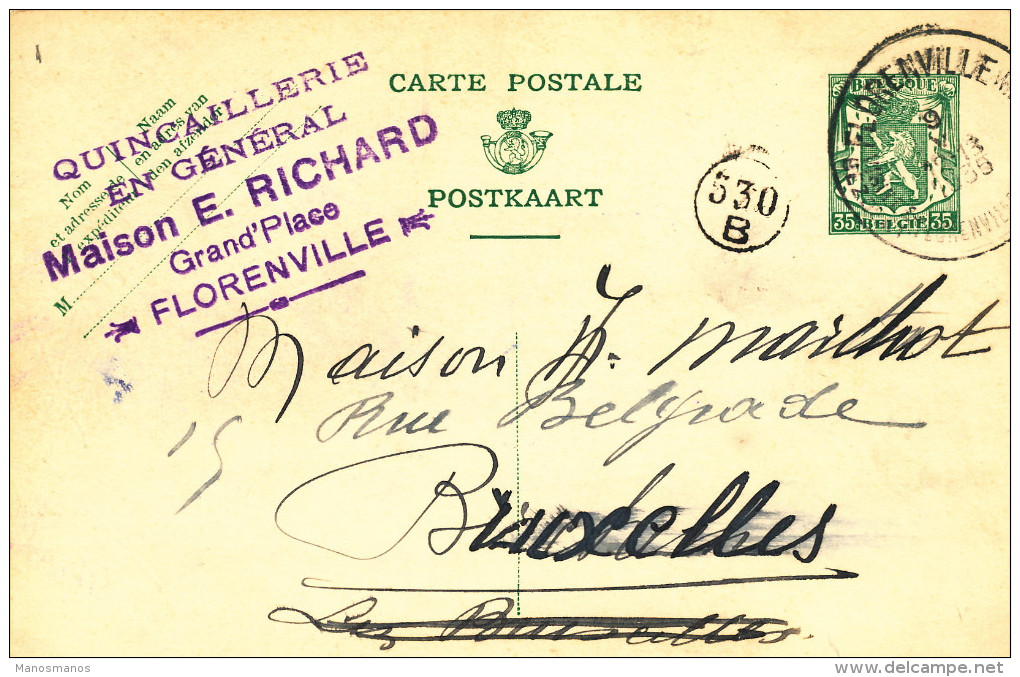 QUINCAILLERIE
EN GÉNÉRAL
Maison E. RICHARD
Grand'Place
FLORENVILLE
Nom
et adresse de
expéditeur
Naam
en adres van
dem afzender
M
CARTE POSTALE
POSTKAART
530
B
BELGIQUE
35 BELGIË 35
FLORENVILLE
Maison H. Marchot
15 Rue Belgrade
Bruxelles
Manosmanos
www.delcampe.net